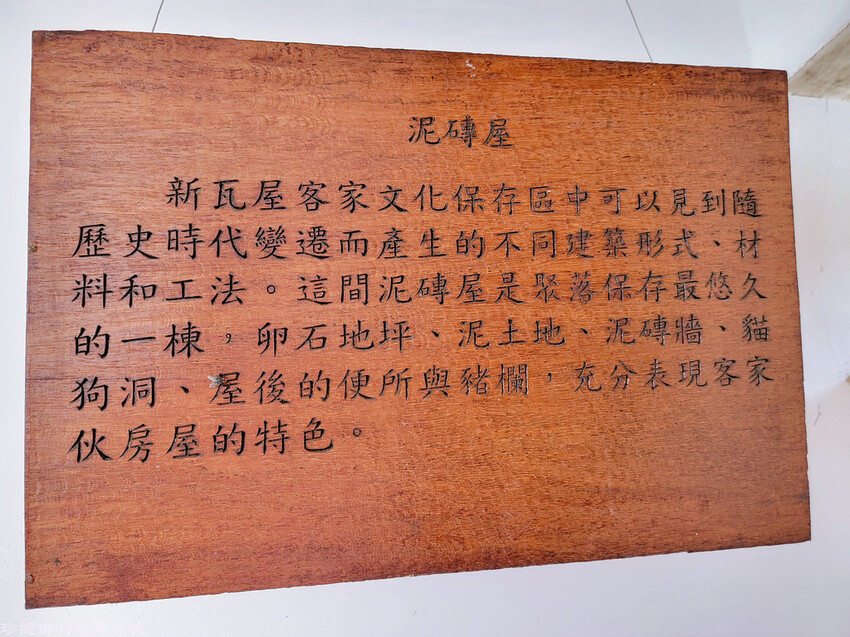 泥磚屋
新瓦屋客家文化保存區中可以見到隨
歷史時代變遷而產生的不同建築形式、材
料和工法。這間泥磚屋是聚落保存最悠久
的一棟，卵石地坪、泥土地、泥磚牆、貓
狗洞、屋後的便所與豬欄，充分表現客家
伙房屋的特色。